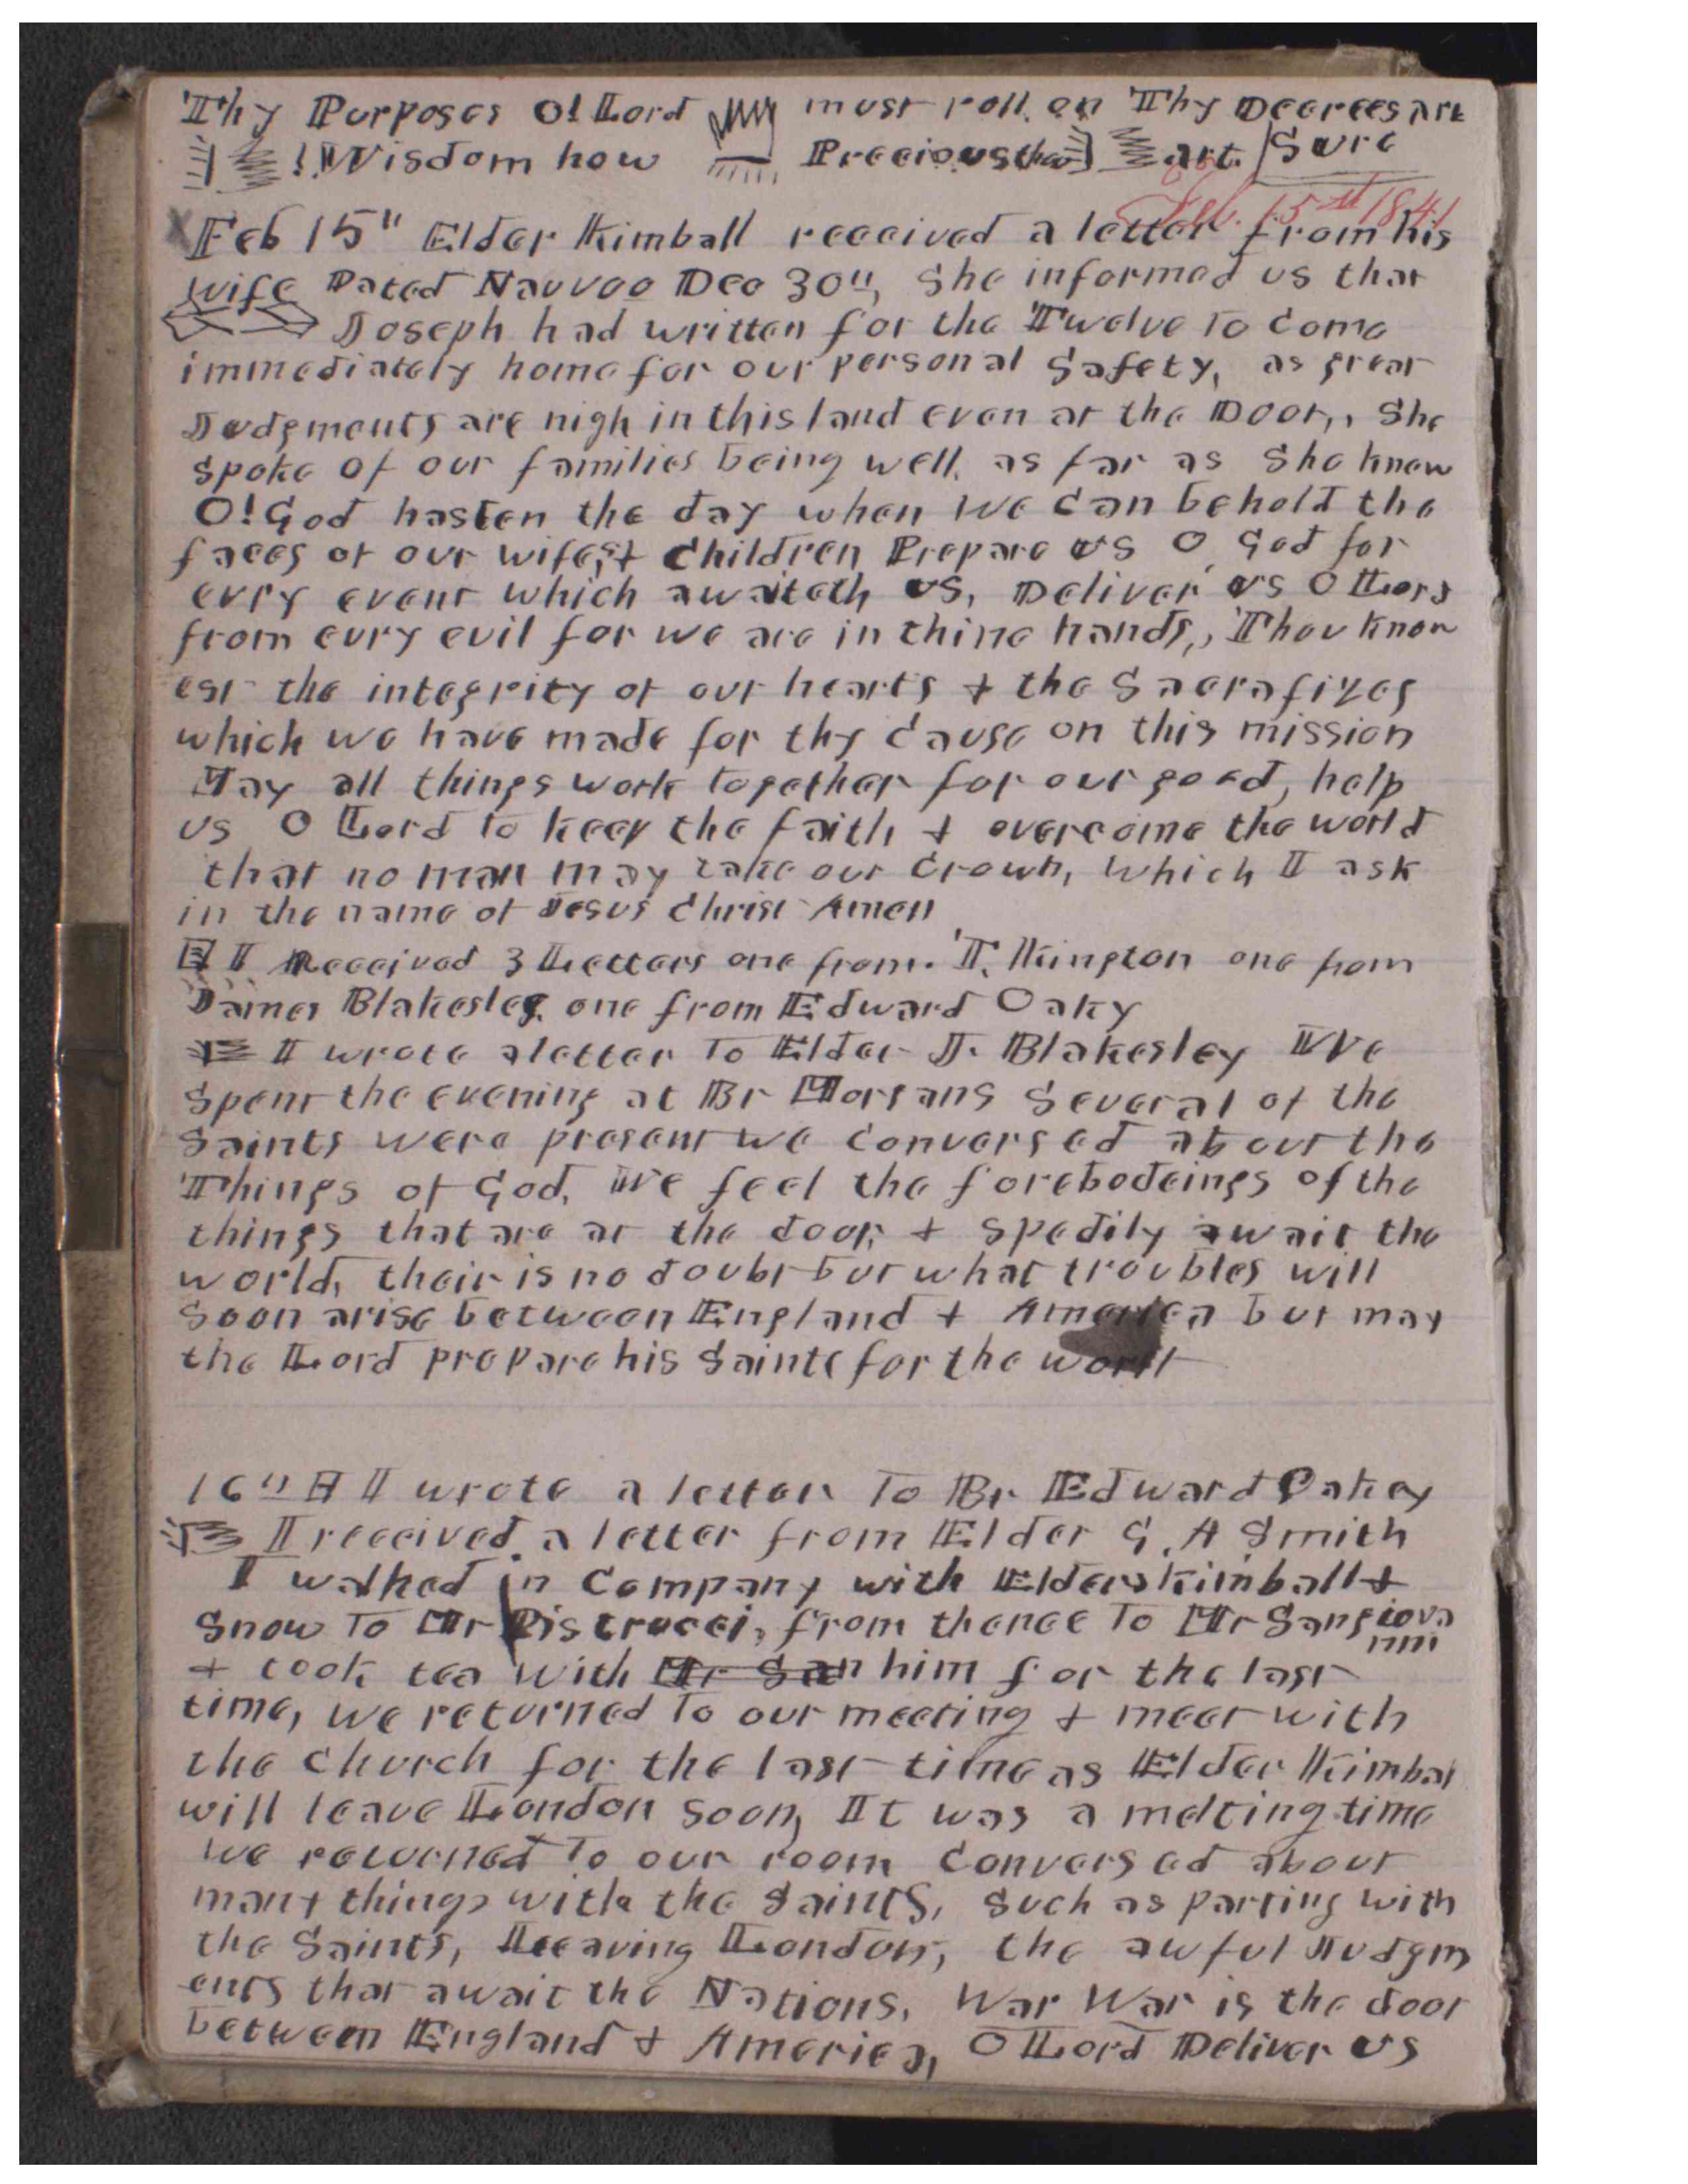 Thy Purposes O! Lord must roll on Thy Decrees are
! Wisdom how Precious thou art Sure
Feb. 15st 1841
Feb 15" Elder Kimball received a letter from his
wife Dated Nauvoo Dec 30", She informed us that
Joseph had written for the Twelve to come
immediately home for our personal Safety, as great
Judgments are nigh in this land even at the Door,, She
Spoke of our families being well, as far as She knew
O! God hasten the day when we can behold the
faces of our wifes, + Children Prepare us O God for
evry event which awaiteth us, Deliver us O Lord
from evry evil for we are in thine hands,, Thou know
est the integrity of our hearts + the Sacrafizes
which we have made for thy cause on this mission
May all things work together for our good, help
us O Lord to keep the faith + overcome the world
that no man may take our Crown, which I ask
in the name of Jesus Christ Amen
I Received 3 Letters one from T. Kington one from
James Blakesley one from Edward Oaky
I wrote a letter To Elder J. Blakesley We
Spent the evening at Br Morgans Several of the
Saints were present we conversed about the
Things of God, We feel the forebodeings of the
things that are at the door, + Spedily await the
world, their is no doubt but what troubles will
Soon arise between England + America but may
the Lord prepare his Saints for the worst
16" I wrote a letter To Br Edward Oakey
I received a letter from Elder G. A Smith
I walked in Company with Elders Kimball +
Snow To Mr Pistrucci, from thence To Mr Sangiova
nni
+ took tea with Mr San him for the last
time, we returned to our meeting + meet with
the Church for the last time as Elder Kimbal
will leave London Soon, It was a melting time
We returned To our room Conversed about
many things with the Saints, Such as parting with
the Saints, Leeaving London, the awful Judgm
ents that await the Nations, War War is the door
between England + America, O Lord Deliver us